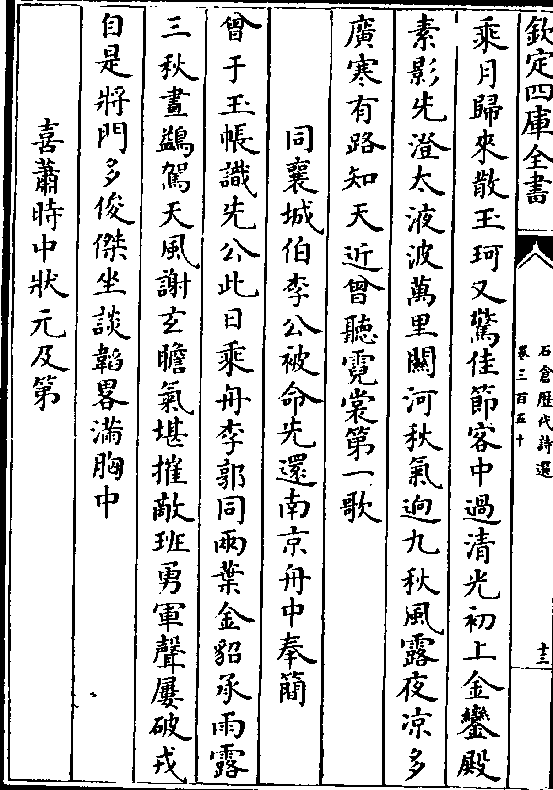 欽定四庫全書
石倉歴代詩選
卷三百五十
十三
乘月歸來散玉珂又驚佳節客中過清光初上金鑾殿
素影先澄太液波萬里關河秋氣逈九秋風露夜凉多
廣寒有路知天近曾聽霓裳第一歌
同襄城伯李公被命先還南京舟中奉簡
曾于玉帳識先公此日乘舟李郭同兩葉金貂承雨露
三秋畫鷁駕天風謝玄瞻氣堪摧敵班勇軍聲屢破戎
自是將門多俊傑坐談韜畧滿胸中
喜蕭時中狀元及第